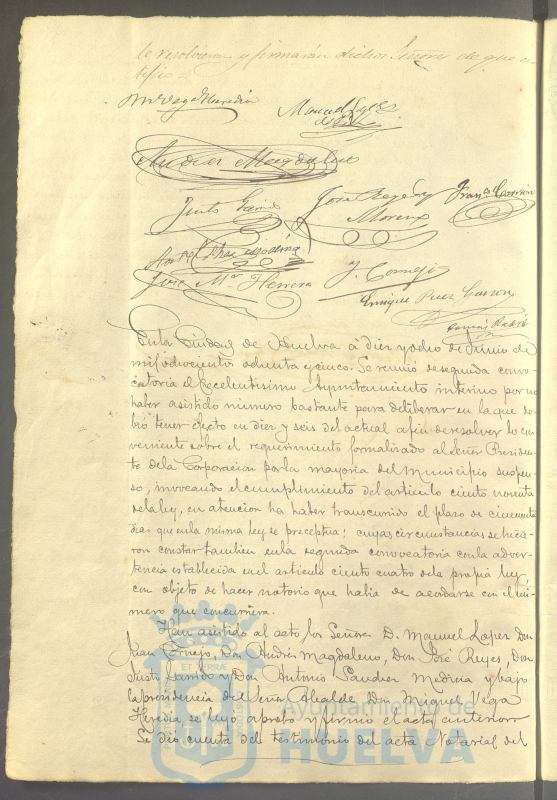 lo resolvieron y firmarán dichos Señores de que cer
tifico =
M. Vega Heredia
Manuel Lopez
Andrés Magdaleno
Justo Garrido
José Reyes y
Moreno
Franco Garzon
José Ma. Herrera
J. Cornejo
Enrique Ruiz Garzon
En la Ciudad de Huelva á diez y ocho de Junio de
mil ochocientos ochenta y cinco. Se reunió de segunda convo-
catoria el Excelentisimo Ayuntamiento interino por no
haber asistido numero bastante para deliberar en la que de-
bió tener efecto en diez y seis del actual a fin de resolver lo con-
veniente sobre el requerimiento formalizado al Señor Presiden-
te de la Corporacion por la mayoria del Municipio suspen-
so, invocando el cumplimiento del articulo ciento noventa
de la ley, en atencion ha haber transcurrido el plazo de cincuenta
dias que en la misma ley se preceptua; cuyas circunstancias se hicie-
ron constar tambien en la segunda convocatoria con la adver-
tencia establecida en el articulo ciento cuatro de la propia ley,
con objeto de hacer notorio que habia de acordarse con el nú-
mero que concurriera.
Han asistido al acto los Señores D. Manuel Lopez Don
Juan Cornejo, Don Andrés Magdaleno, Don José Reyes, Don
Justo Garrido y Don Antonio Sanchez Medina y bajo
la presidencia del Señor Alcalde Don Miguel Vega
Heredia se leyó aprobó y firmó el acta anterior
Se dió cuenta del testimonio del acta Notarial del
ET TERRÆ
Ayuntamiento de
HUELVA